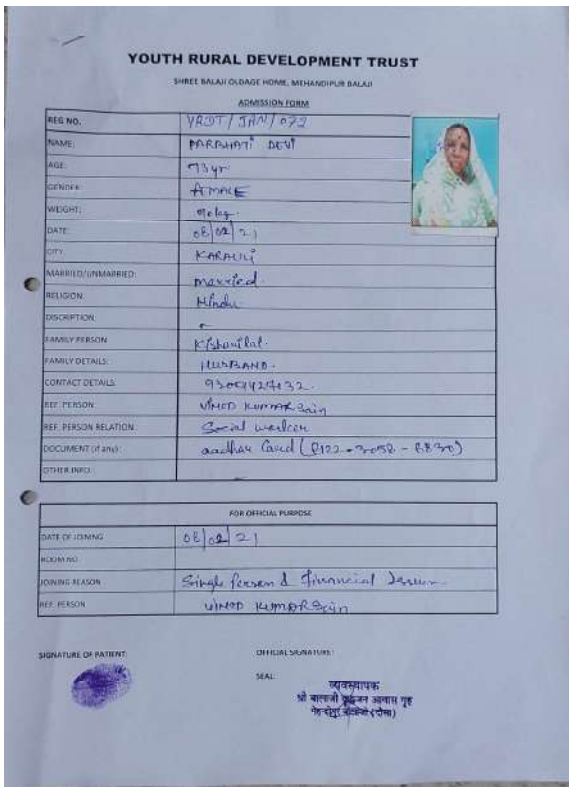 YOUTH RURAL DEVELOPMENT TRUST
SHREE BALAJI OLDAGE HOME, MEHANDIPUR BALAJI
ADMISSION FORM
REG NO. YRDT/JAN/072
NAME: PARBHATI DEVI
AGE: 73yr
GENDER:
WEIGHT:
DATE: 08/02/21
CITY: KARAULI
MARRIED/UNMARRIED: married.
RELIGION: Hindu
DISCRIPTION:
FAMILY PERSON
FAMILY DETAILS: HUSBAND.
CONTACT DETAILS:
REF. PERSON: VINOD KUMAR Sain
REF. PERSON RELATION: Social worker
DOCUMENT (if any): aadhar Card
OTHER INFO.:
FOR OFFICIAL PURPOSE
DATE OF JOINING 08/02/21
ROOM NO.
JOINING REASON Single Person & Financial
REF. PERSON VINOD KUMAR Sain
SIGNATURE OF PATIENT:
OFFICIAL SIGNATURE:
SEAL:
व्यवस्थापक
श्री बालाजी आवास गृह
(दौसा)